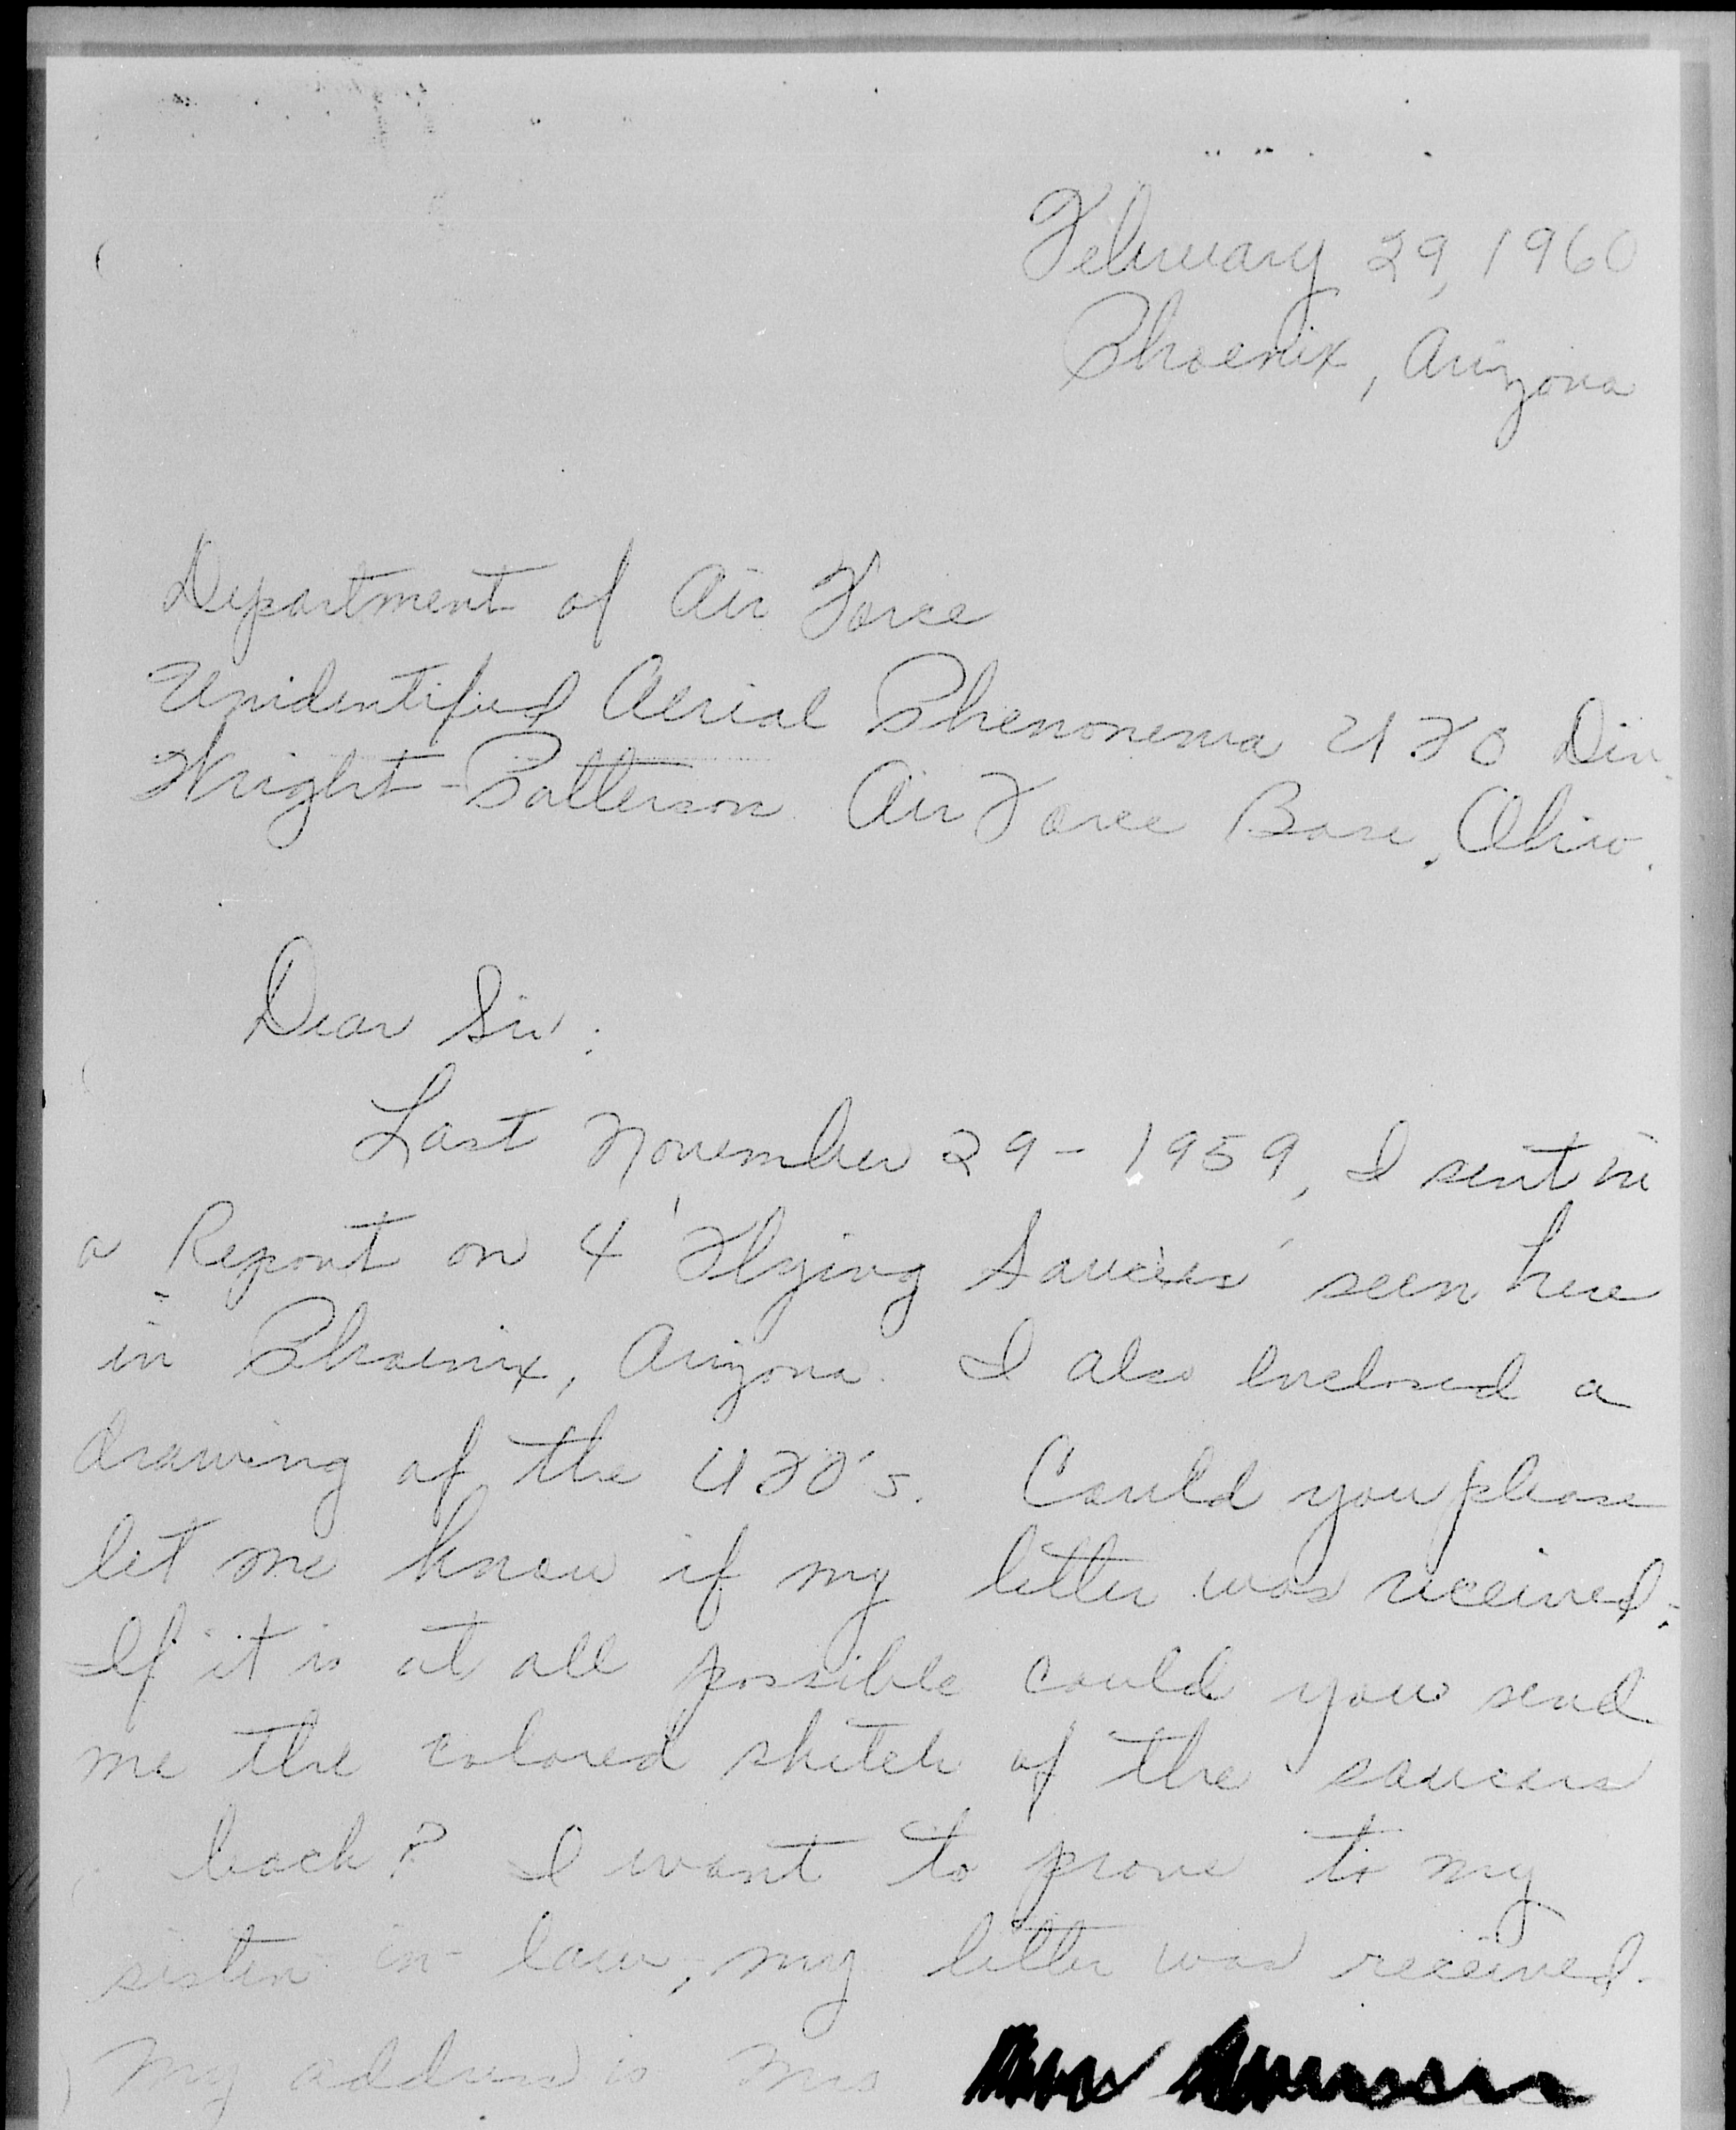 February 29, 1960
Phoenix, Arizona
Department of Air Force
Unidentified Aerial Phenonema UFO Div.
Wright-Patterson Air Force Base, Ohio.
Dear Sir:
Last November 29 - 1959, I sent in
a Report on 4 'Flying Saucers' seen here
in Phoenix, Arizona. I also enclosed a
drawing of the UFO's. Could you please
let me know if my letter was received.
If it is at all possible could you send
me the colored sketch of the saucers
back? I want to prove to my
sister-in-law, my letter was received.
My address is Mrs